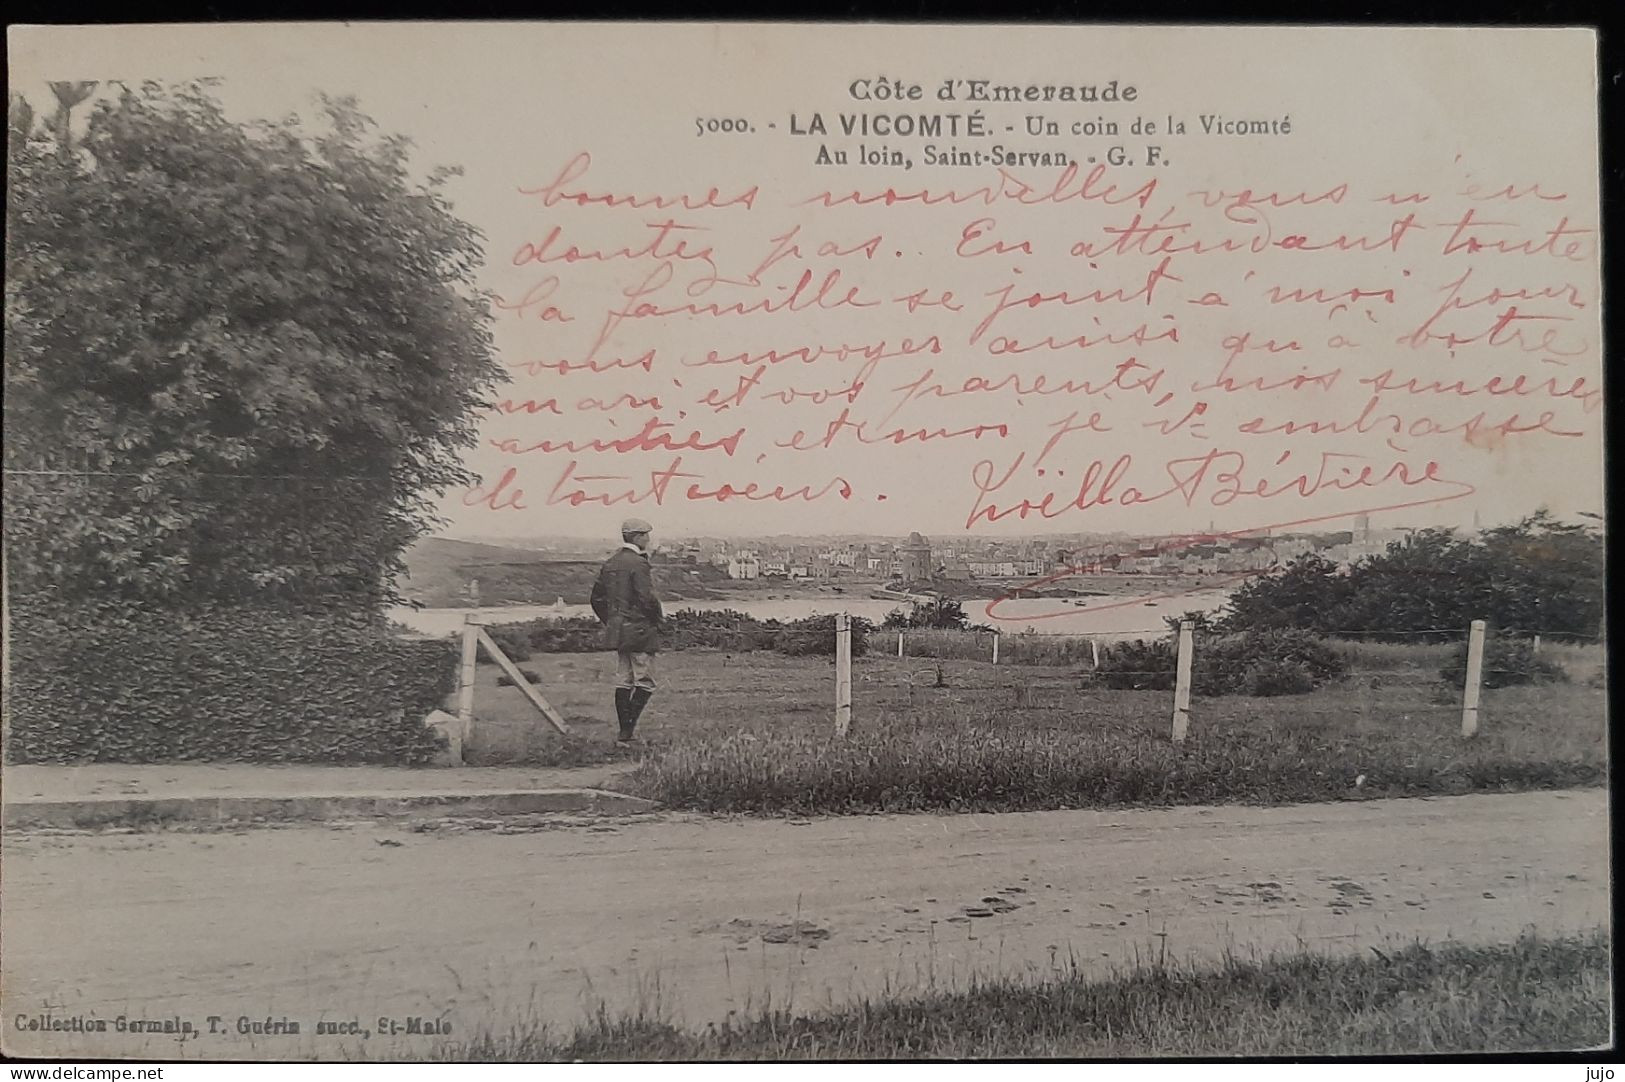 Côte d'Emeraude
5000. - LA VICOMTÉ. - Un coin de la Vicomté
Au loin, Saint-Servan. - G. F.
bonnes nouvelles, vous n'en
doutez pas.. En attendant toute
la famille se joint à moi pour
vous envoyer ainsi qu'à votre
mari et vos parents, nos sincères
amitiés, et moi je vs embrasse
de tout coeur.
Bévière
Collection Germain, T. Guérin succ., St-Malo
delcampe.net
jujo